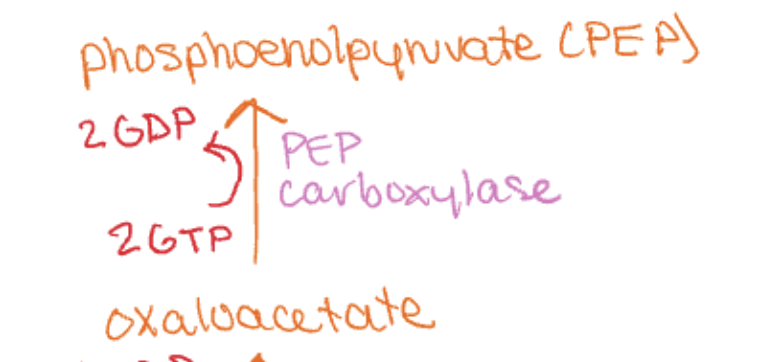 phosphoenolpyruvate (PEP)
2 GDP
PEP
carboxylase
2 GTP
oxaloacetate